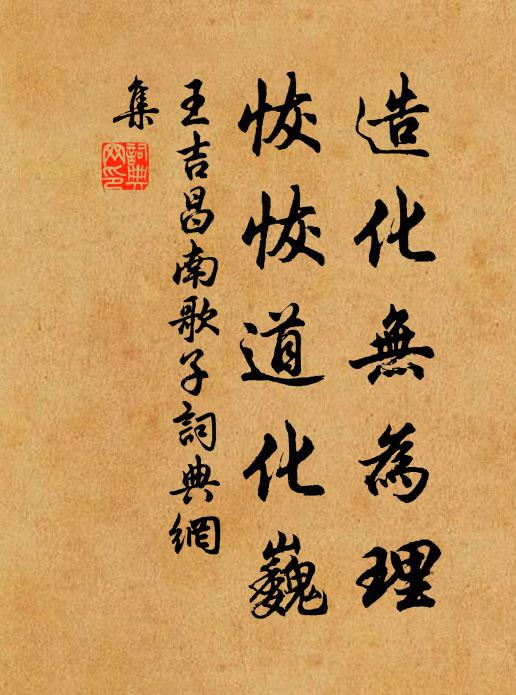 造化無為理
恢恢道化巍
王吉昌南歌子詞典網
集
詞典網印